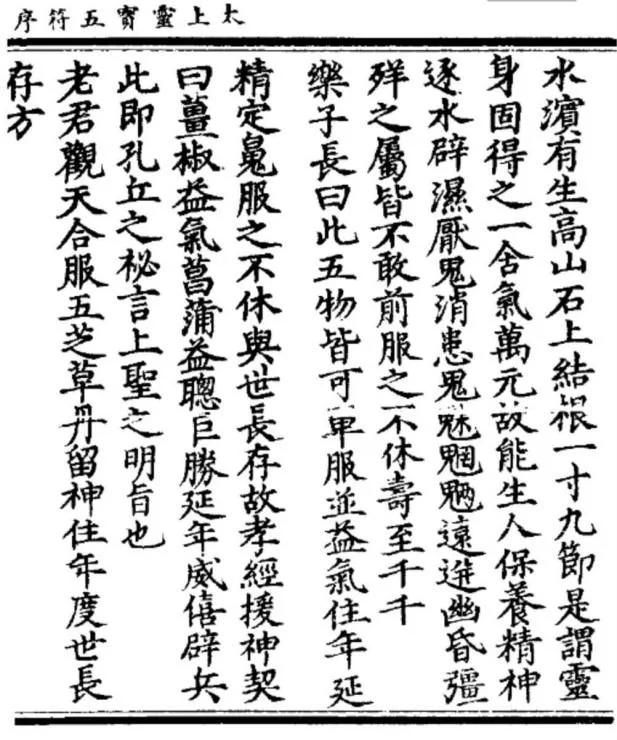 太上靈寶五符序
水濱有生高山石上結根一寸九節是謂靈
身固得之一含氣萬元故能生人保養精神
逐水辟濕厭鬼消患鬼魅魍魎遠迸幽昏彊
之屬皆不敢前服之不休壽至千千
樂子長曰此五物皆可單服並益氣住年延
精定䰟服之不休與世長存故孝經援神契
曰薑椒益氣菖蒲益聰巨勝延年威僖辟兵
此即孔丘之祕言上聖之明旨也
老君觀天合服五芝草丹留神住年度世長
存方